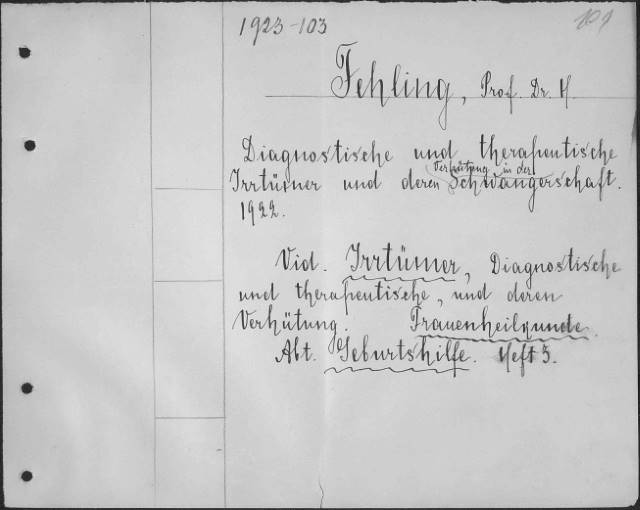 1923-103
Fehling, Prof. Dr. H
Diagnostische und therapeutische
Verhütung in der
Irrtümer und deren Schwangerschaft.
1922.
Vid. Irrtümer, Diagnostische
und therapeutische, und deren
Verhütung. Frauenheilqunde.
Abt. Geburtshilfe. Heft 3.